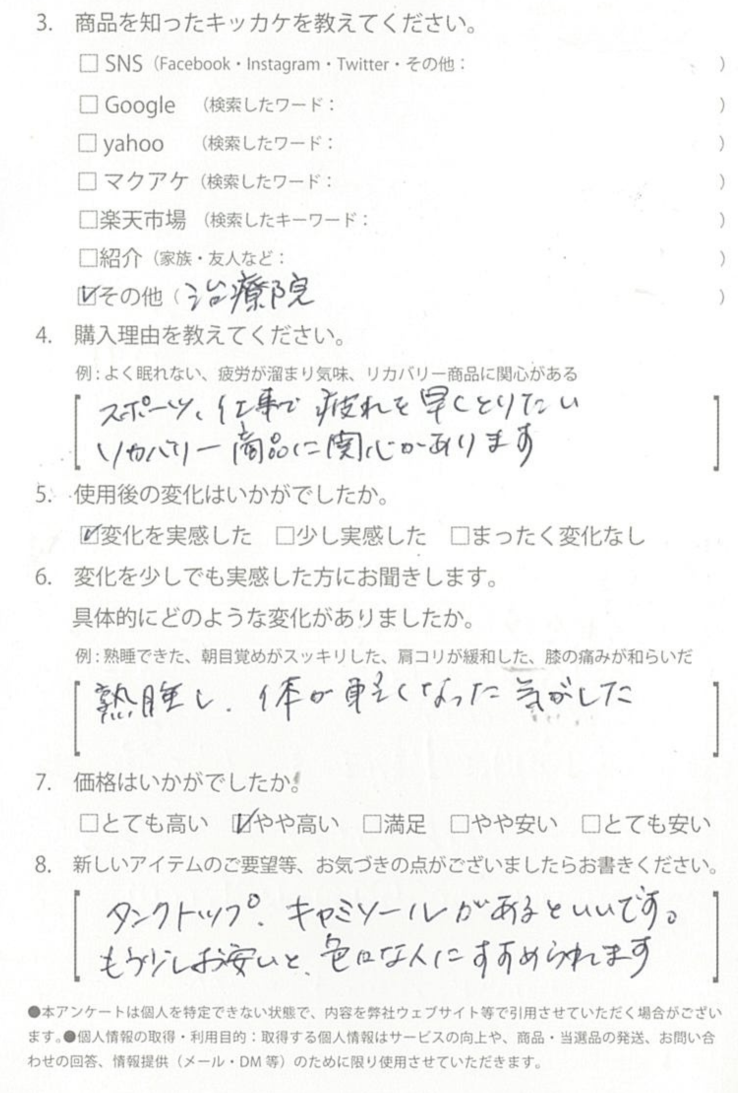 3. 商品を知ったキッカケを教えてください。
□ SNS（Facebook・Instagram・Twitter・その他：　）
□ Google （検索したワード：　）
□ yahoo （検索したワード：　）
□ マクアケ（検索したワード：　）
□楽天市場 （検索したキーワード：　）
□紹介（家族・友人など：　）
☑その他（治療院　）
4. 購入理由を教えてください。
例：よく眠れない、疲労が溜まり気味、リカバリー商品に関心がある
スポーツ、仕事で 疲れを早くとりたい
リカバリー商品に関心があります
5. 使用後の変化はいかがでしたか。
☑変化を実感した □少し実感した □まったく変化なし
6. 変化を少しでも実感した方にお聞きします。
具体的にどのような変化がありましたか。
例：熟睡できた、朝目覚めがスッキリした、肩コリが緩和した、膝の痛みが和らいだ
熟睡し、体が軽くなった気がした
7. 価格はいかがでしたか。
□とても高い ☑やや高い □満足 □やや安い □とても安い
8. 新しいアイテムのご要望等、お気づきの点がございましたらお書きください。
タンクトップ、キャミソールがあるといいです。
もう少しお安いと、色々な人にすすめられます
●本アンケートは個人を特定できない状態で、内容を弊社ウェブサイト等で引用させていただく場合がござい
ます。●個人情報の取得・利用目的：取得する個人情報はサービスの向上や、商品・当選品の発送、お問い合
わせの回答、情報提供（メール・DM等）のために限り使用させていただきます。